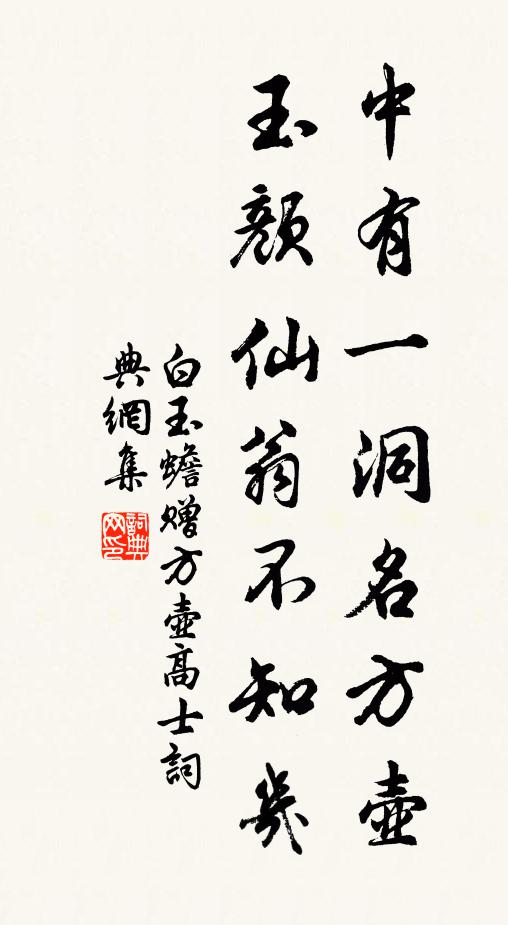 中有一洞名方壺
玉顏仙翁不知幾
白玉蟾贈方壺高士詞
典網集
詞典
网印